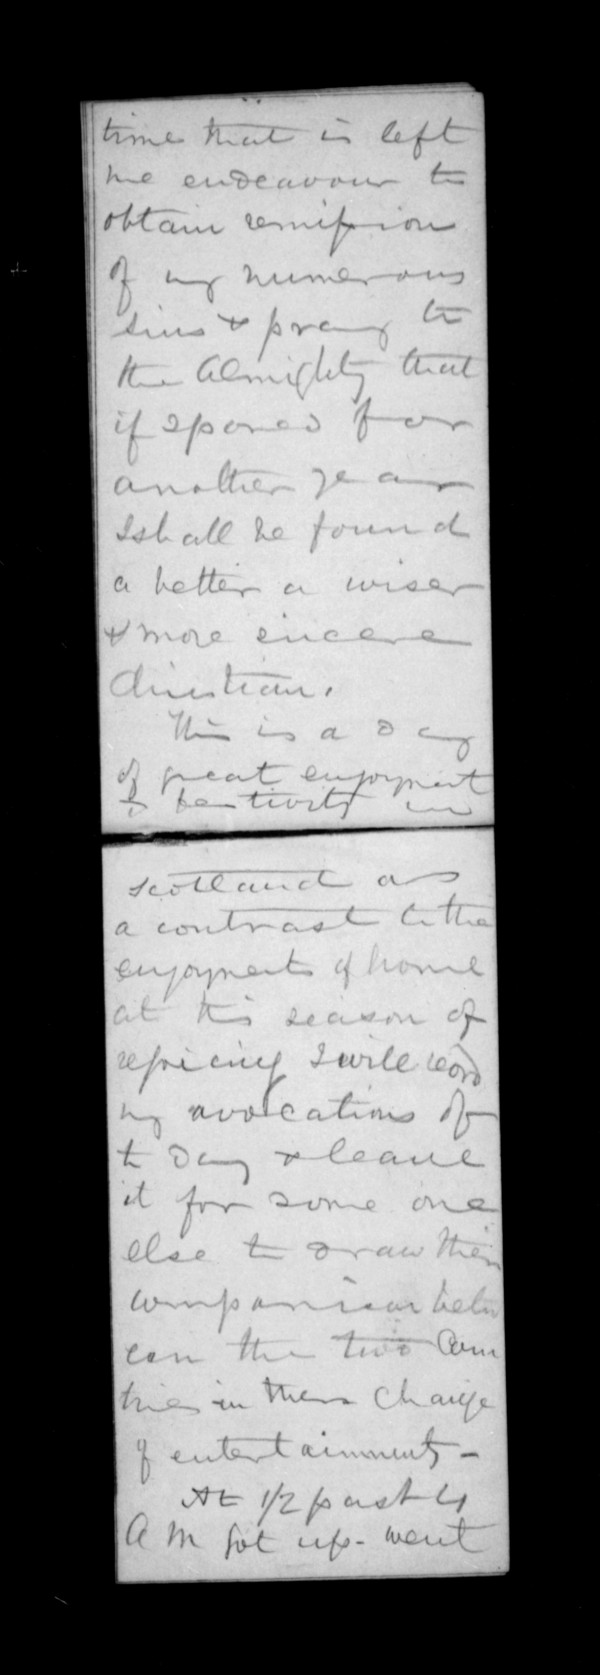 time that is left
me endeavour to
obtain remission
of my numerous
sins & pray to
the Almighty that
if spared for
another year
I shall be found
a better a wiser
& more sincere
Christian.
This is a day
of great enjoyment
& festivity in
Scotland as
a contrast to the
enjoyments of home
at this season of
rejoicing I will record
my avocations of
to day & leave
it for some one
else to draw their
comparison betw
een the two Coun
tries in there change
of entertainments -
At 1/2 past 4
A M got up - went